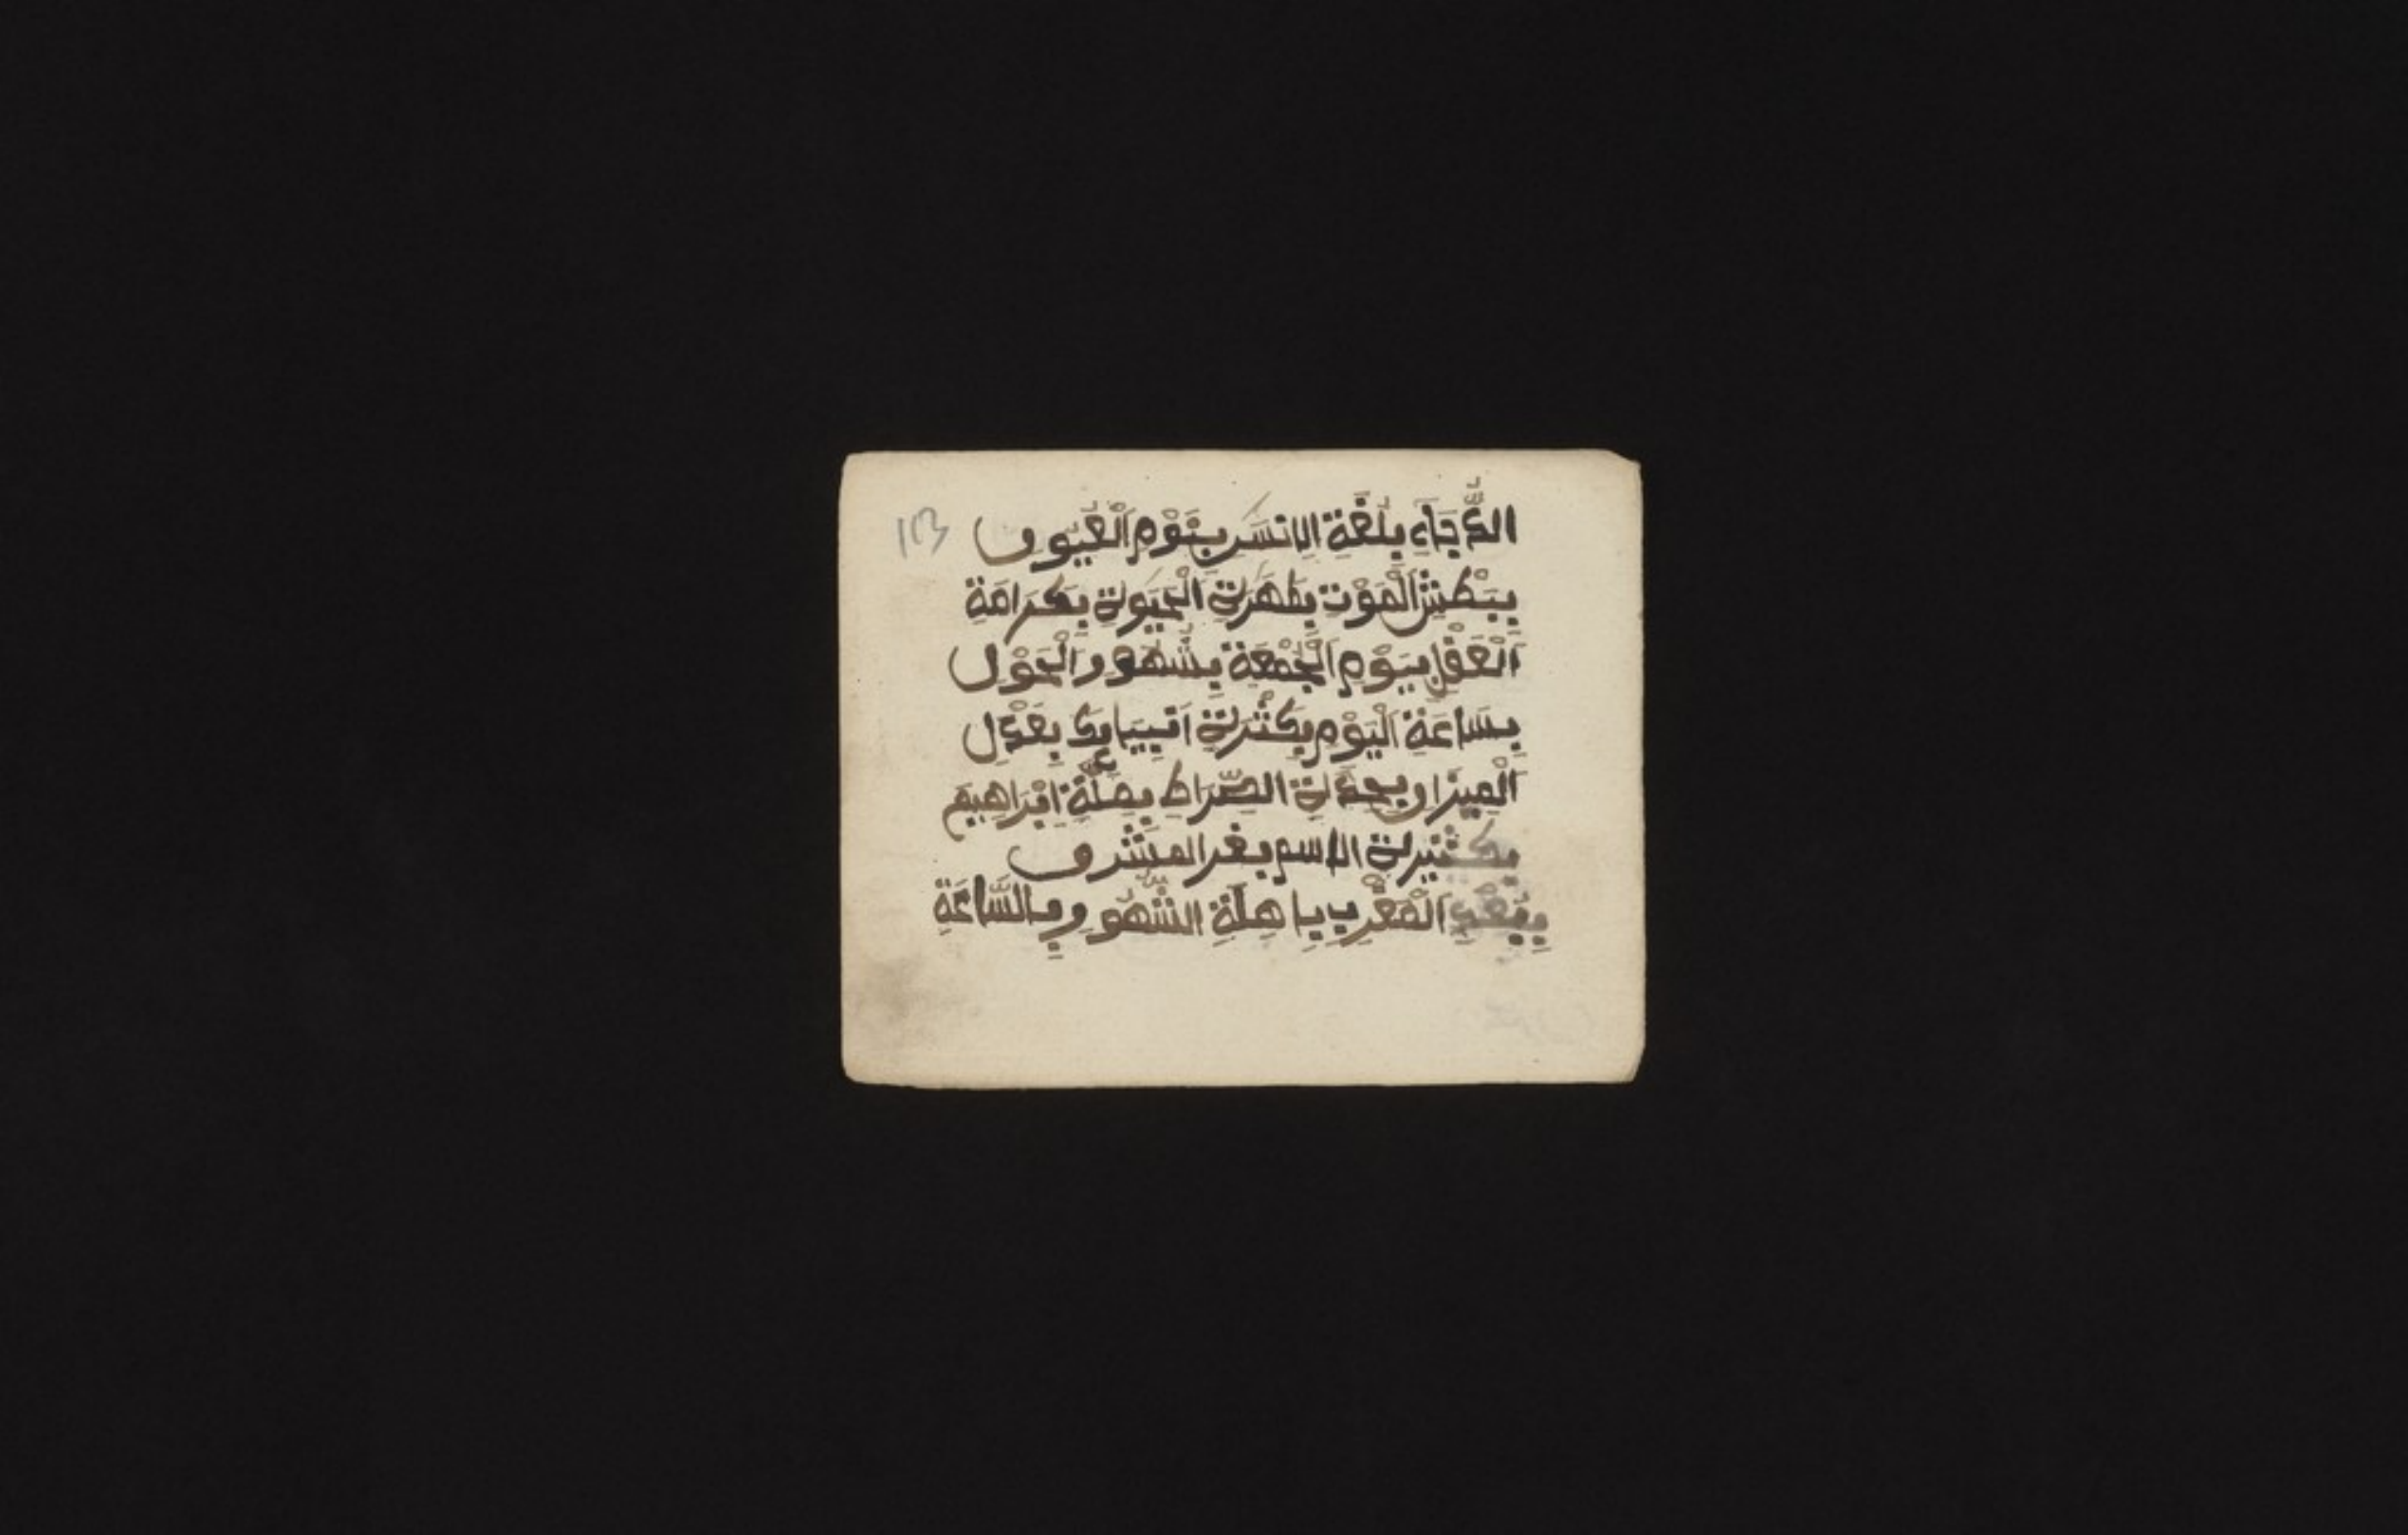 113
الدُّجَاءِ بِلُغَةِ الاِنسَرِ بِنَوْمِ الْعُيُوں
بِبَطْشِ الْمَوْتِ بِطَهَرَةِ الْحَيَوةِ بِكَرَامَةِ
الْعَقْلِ بِيَوْمِ الْجُمْعَةِ بِشُّهُورِ الْحَوْلِ
بِسَاعَةِ الْيَوْمِ بِكَثْرَةِ اَنبِيَايِكَ بِعَدْلِ
الْمِيزَاںِ الصِّرَاطِ بِمِلَّةِ اِبْرَاهِيمَ
الاسم المشرق
الْمَغْرِبِ بِاهِلَّةِ الشُّهُورِ وبِالسَّاعَةِ